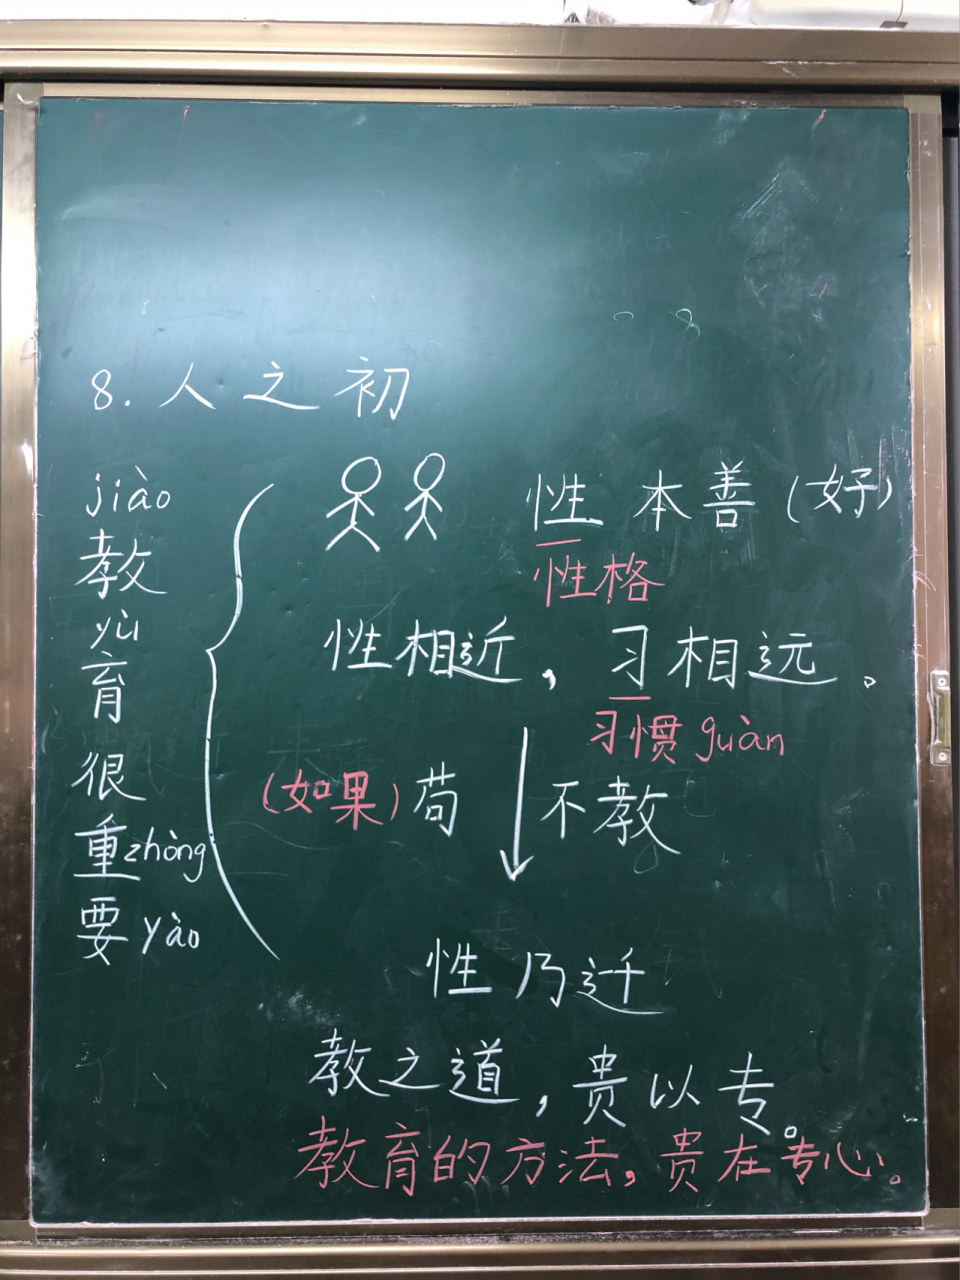 8. 人之初
jiào
教
yù
育
很
重 zhòng
要 yào
性 本善(好)
性格
性相近,习相远。
习惯 guàn
(如果)苟 不教
性乃迁
教之道,贵以专。
教育的方法,贵在专心。